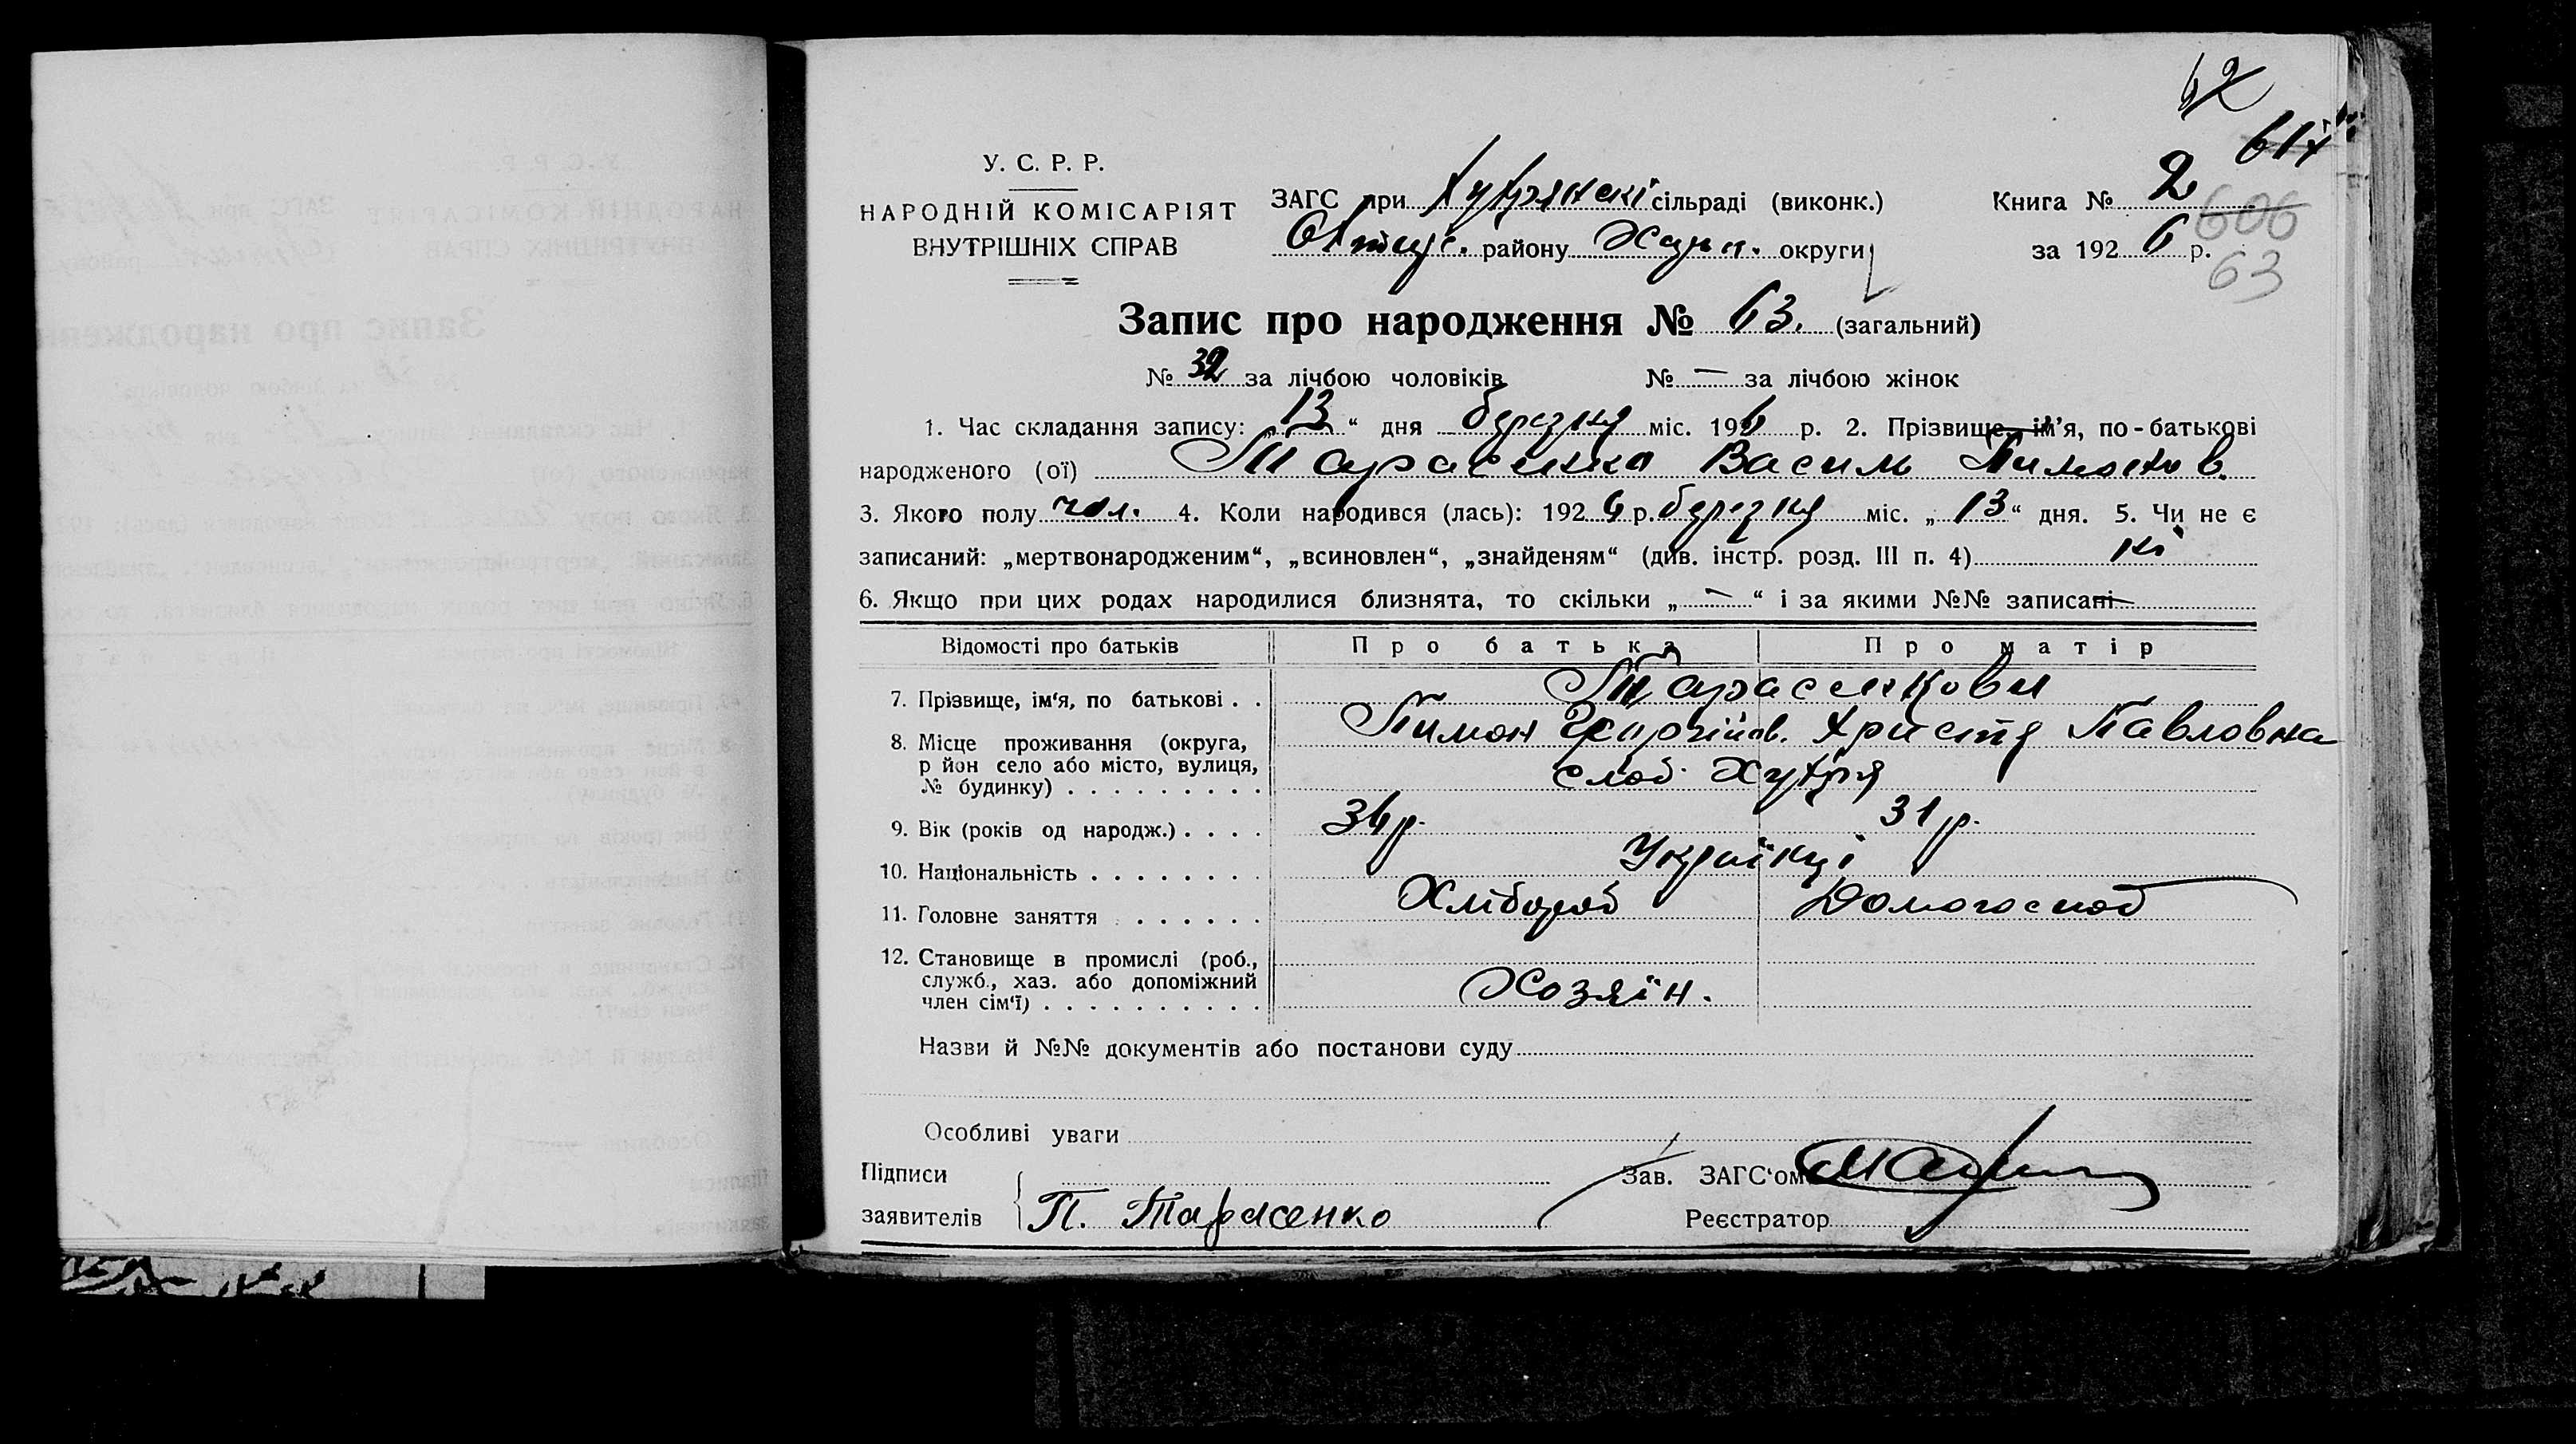 62
617
У. С. Р. Р.
НАРОДНІЙ КОМІСАРІЯТ
ВНУТРІШНІХ СПРАВ
ЗАГС при сільраді (виконк.)
району Харк. округи
Книга № 2
606
за 1926 р.
63
Запис про народження № 63. (загальний)
№ 32 за лічбою чоловіків № — за лічбою жінок
1. Час складання запису: „13“ дня березня міс. 1926 р. 2. Прізвище, ім'я, по-батькові
народженого (ої) Тарасенко Василь Пимонов.
3. Якого полу чол. 4. Коли народився (лась): 1926 р. березня міс. „13“ дня. 5. Чи не є
записаний: „мертвонародженим“, „всиновлен“, „знайденям“ (див. інстр. розд. III п. 4) ні
6. Якщо при цих родах народилися близнята, то скільки „—“ і за якими №№ записані —
Відомості про батьків Про батька Про матір
7. Прізвище, ім'я, по батькові . . Тарасенкови
Пимон Христя Павловна
8. Місце проживання (округа,
р йон село або місто, вулиця,
№ будинку) . . . . . . . . . слоб.
9. Вік (років од народж.) . . . . 36 р. 31 р.
10. Національність . . . . . . . . Українці
11. Головне заняття . . . . . . Хлібороб Домогоспод
12. Становище в промислі (роб.,
служб., хаз. або допоміжний
член сім'ї) . . . . . . . . . . Хозяїн.
Назви й №№ документів або постанови суду
Особливі уваги
Підписи
заявителів П. Тарасенко
Зав. ЗАГС'ом
Реєстратор